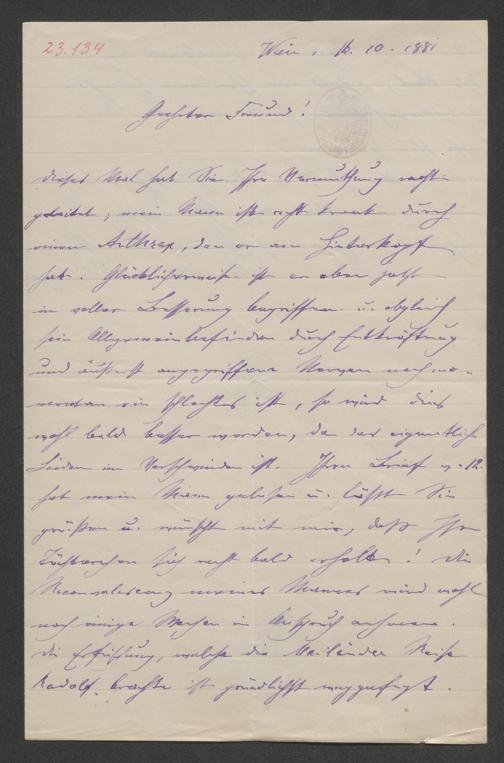 23.134
Wien, 16. 10. 1881
Geehrter Freund!
Dieses Mal hat Sie Ihre Vermuthung recht
geleitet; mein Mann ist recht krank durch
einen Anthrax, den er am Hinterkopf
hat. Glücklicherweise ist er aber jetzt
in voller Besserung begriffen u. obgleich
sein Allgemeinbefinden durch Entkräftung
und äußerst angegriffene Nerven noch mo-
mentan ein schlechtes ist, so wird dies
wohl bald besser werden, da das eigentliche
Leiden im Verschwinden ist. Ihren Brief v. 12.
hat mein Mann gelesen u. läßt Sie
grüßen u. wünscht mit mir, daß Ihr
Töchterchen sich recht bald erhole! Die
Reconvalescenz meines Mannes wird wohl
noch einige Wochen in Anspruch nehmen.
Die Erfrischung, welche die Mailänder Reise
Rudolf brachte ist gründlichst weggefegt.